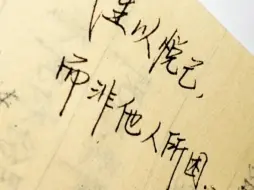 谨以悦己，
而非他人所困